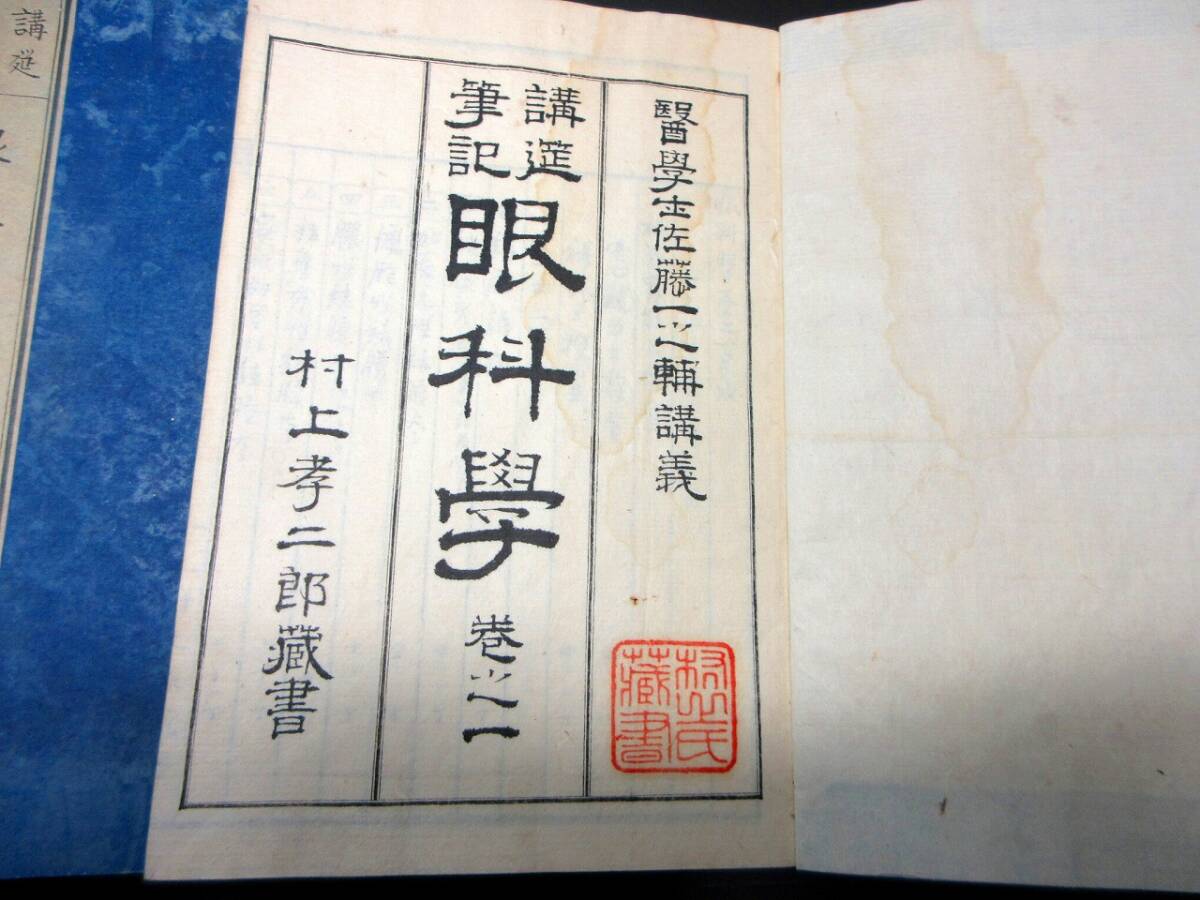 醫學士佐藤一之輔講義
講莚筆記
眼科學 卷之一
村上孝二郎藏書
村上氏藏書
講莚